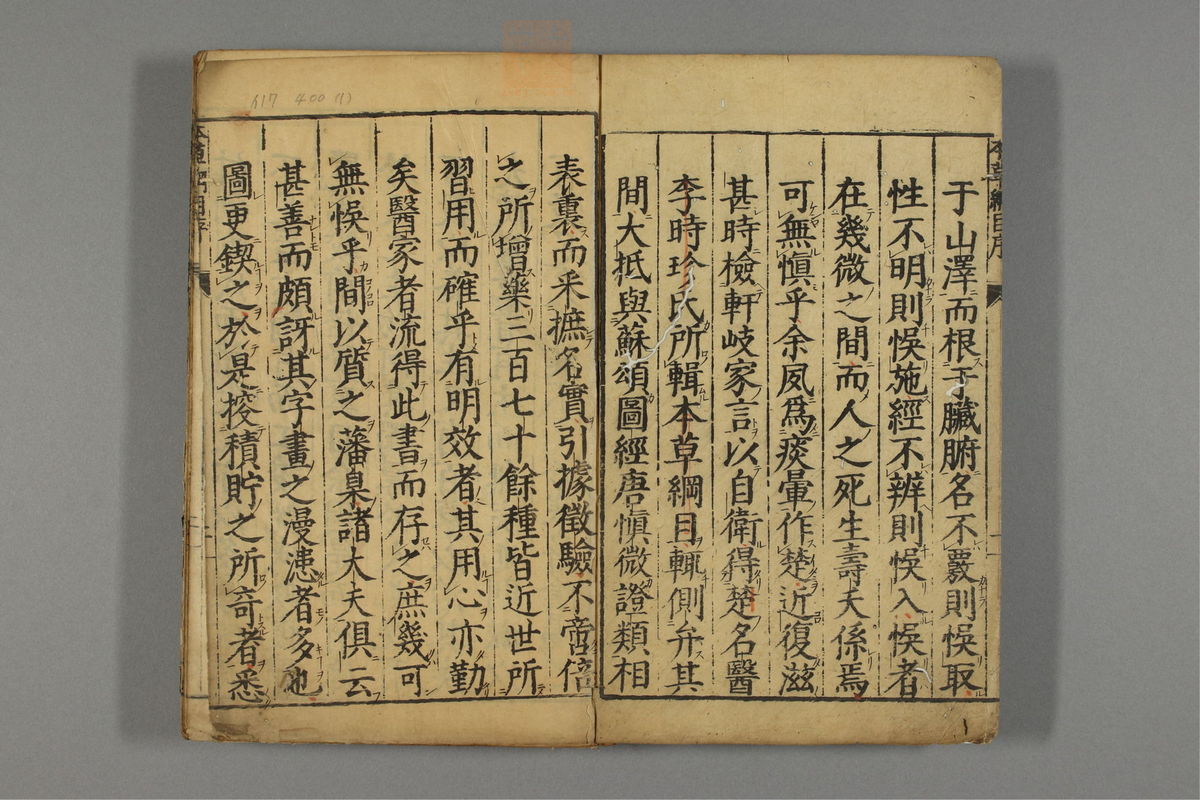 本草綱目序
于山澤而根于臟腑名不覈則悞取
性不明則悞施經不辨則悞入悞者
在幾微之間而人之死生壽夭係焉
可無慎乎余夙爲痰暈作楚近復滋
甚時檢軒岐家言以自衛得楚名醫
李時珍氏所輯本草綱目輒側弁其
間大抵與蘇頌圖經唐慎微證類相
表裏而采摭名實引據徵驗不啻倍
之所增藥三百七十餘種皆近世所
習用而確乎有明效者其用心亦勤
矣醫家者流得此書而存之庶幾可
無悞乎間以質之藩臬諸大夫俱云
甚善而頗訝其字畫之漫漶者多也
圖更鍥之於是捘積貯之所奇者悉
617 400 (1)